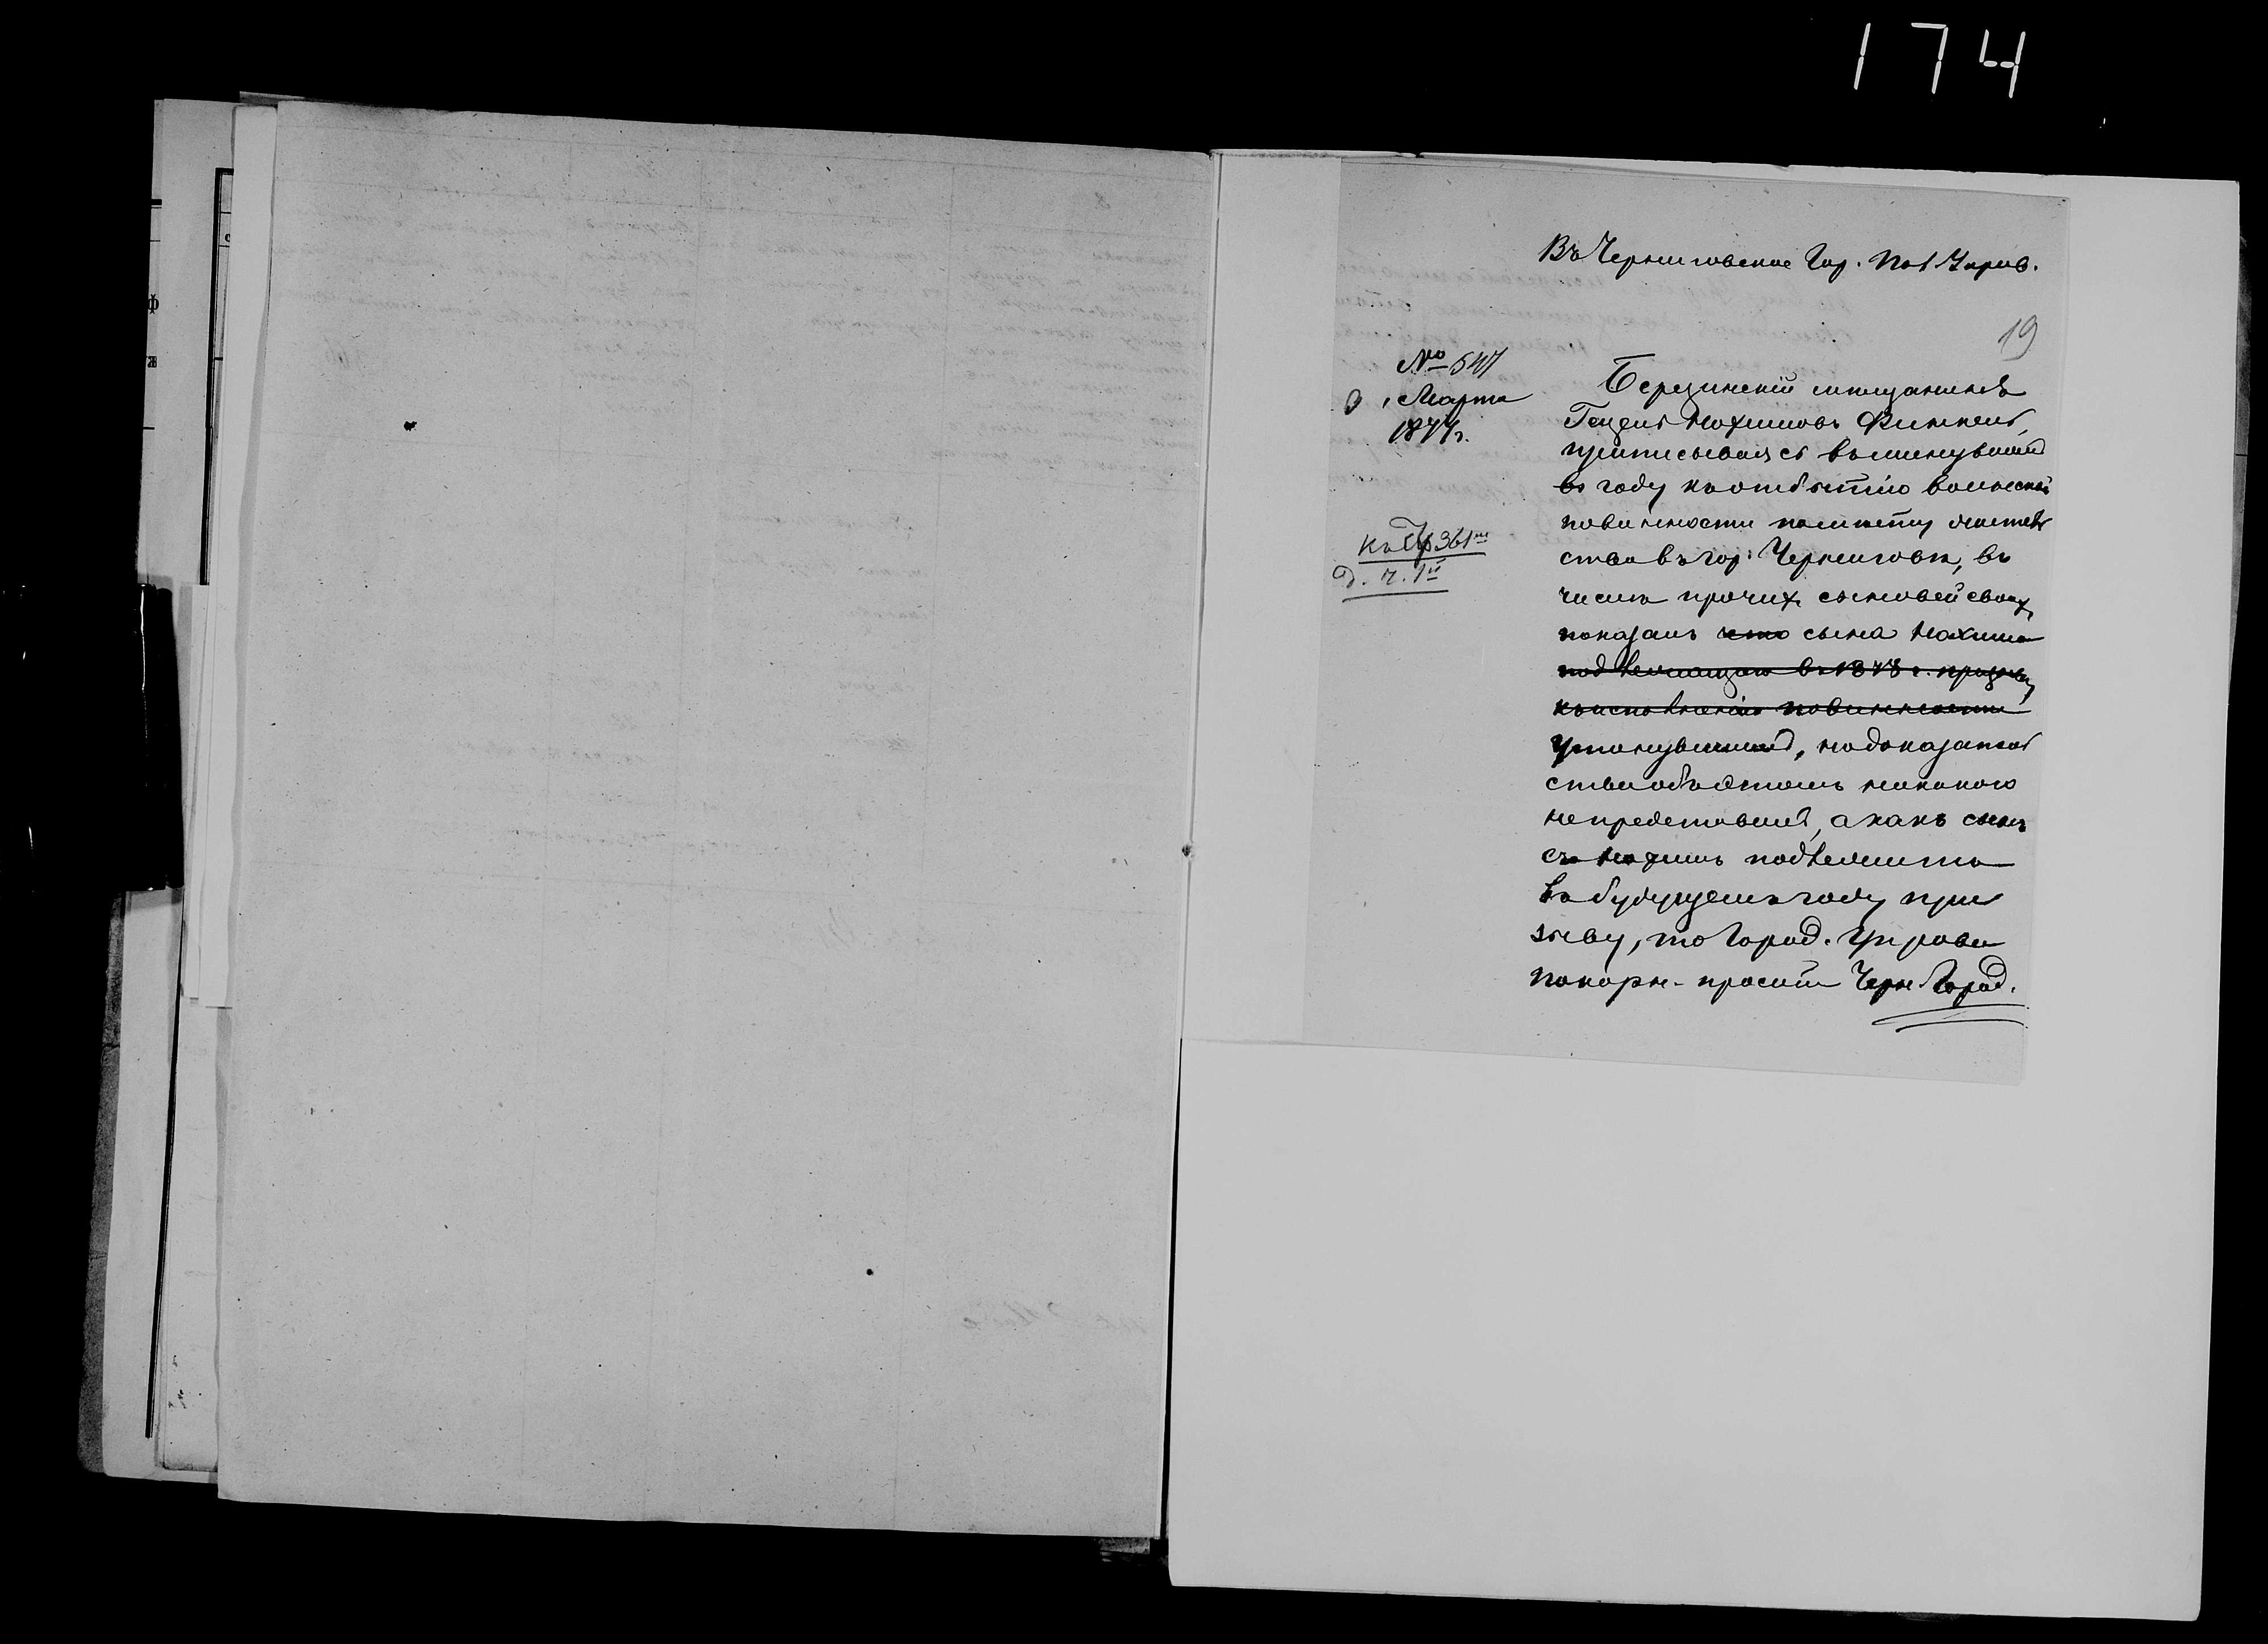 174
Въ Черниговское Гор. Пол. Управ.
19
№ 547
Марта
1877 г.
Березинскій мещанинъ
Гецель Нохимовъ Финкель,
приписываясь въ минувшемъ
году къ отбытію воинской
повинности по месту житель
ства въ гор. Чернигове, въ
числе прочихъ сыновей своихъ,
показалъ что сына Нохима
подлежащаго въ 1878 г. призыву
къ исполненію повинности
утонувшимъ, но доказатель
ства объ этомъ никакого
не представилъ, а какъ сынъ
Нохимъ подлежитъ
въ будущемъ году при
зыву, то Город. Управа
покорн. проситъ Черн. Город.
къ стр 361
д. ч. 1й